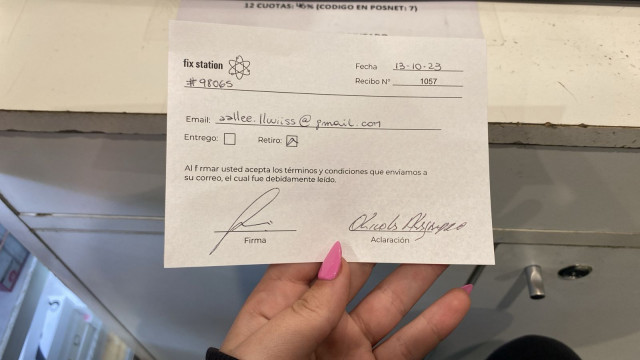 12 CUOTAS: 40% (CODIGO EN POSNET: 7)
fix station
Fecha 13-10-23
#98065
Recibo N° 1057
Email: @gmail.com
Entrego: Retiro:
Al firmar usted acepta los términos y condiciones que enviamos a
su correo, el cual fue debidamente leído.
Firma Aclaración